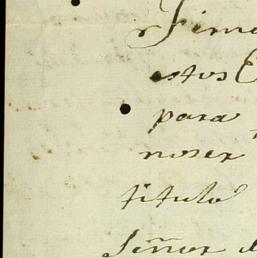 estos
para
noser
titulo
Señor